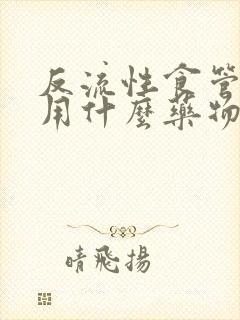 反流性食管
用什麼藥物
晴飛揚